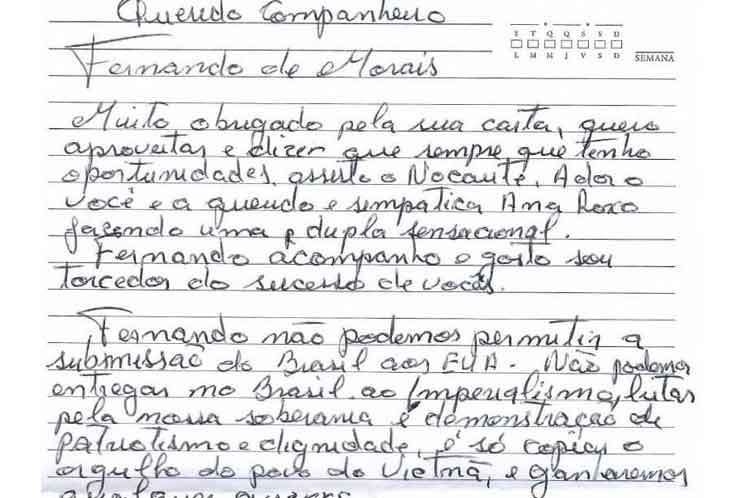 Querido Companheiro
S T Q Q S S D
L M M J V S D
SEMANA
Fernando de Morais
Muito obrigado pela sua carta, quero
aproveitar e dizer que sempre que tenho
oportunidades, assisto o Nocaute, Adoro
você e a querido e simpatica Ana Roxo
fazendo uma dupla sensacional.
Fernando acompanho e gosto sou
torcedor do sucesso de vocês.
Fernando não podemos permitir a
submissão do Brasil aos EUA. Não podemos
entregar no Brasil ao Imperialismo, lutar
pela nossa soberania é demonstração de
patriotismo e dignidade, é só copiar o
orgulho do povo do Vietnã, e ganharemos